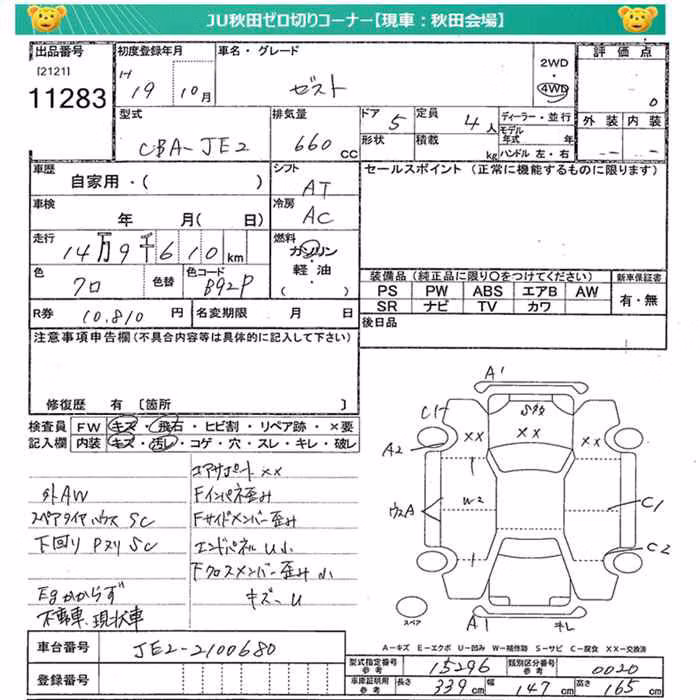 JU秋田ゼロ切りコーナー【現車：秋田会場】
出品番号 初度登録年月 車名・グレード 2WD 評価点
[2121] H 19 10月 ゼスト ・ 4WD 0
11283
型式 排気量 ドア 5 定員 4人 ディーラー・並行 外装 内装
CBA-JE2 660 CC 形状 積載 kg モデル年式 年 -- --
ハンドル 左・右
車歴 シフト セールスポイント（正常に機能するものに限ります）
自家用・( ) AT
車検 冷房
年 月( 日) AC
走行 燃料
14万9千610km ガソリン
軽油
( ・ )
色 色替 色コード 装備品（純正品に限り○をつけてください） 新車保証書
クロ B92P PS PW ABS エアB AW 有・無
SR ナビ TV カワ
R券 10,810 円 名変期限 月 日 後日品
注意事項申告欄（不具合内容等は具体的に記入して下さい）
修復歴 有 〔箇所 〕
検査員 FW キズ・飛石・ヒビ割・リペア跡・×要
記入欄 内装 キズ・汚レ・コゲ・穴・スレ・キレ・破レ
コアサポート ××
外AW Fインパネ歪み
スペアタイヤハウス SC Fサイドメンバー歪み
下回り Pヌリ SC エンドパネル U小
Fクロスメンバー歪み 小
Egかからず キズ〜U
不動車 現状車
A'
C1
××
××
××
A2
W2
ウスA
C1
C2
スペア
A1
キレ
A－キズ E－エクボ U－凹み W－補修跡 S－サビ C－腐食 XX－交換済
車台番号 JE2-2100680
登録番号
型式指定番号 参考 15296 類別区分番号 参考 0020
車庫証明用 参考 長さ 339cm 幅 147cm 高さ 165cm